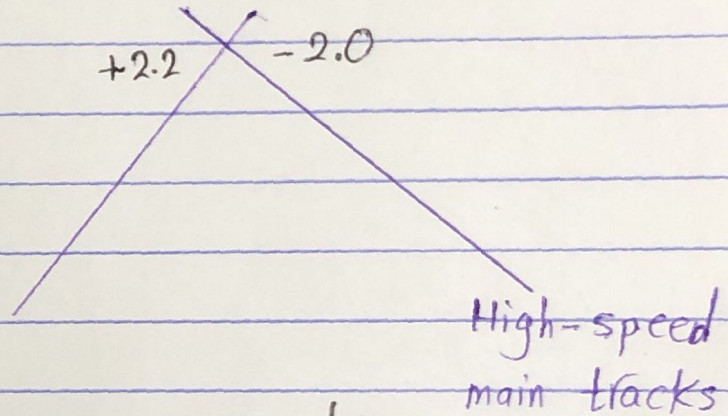 +2.2
-2.0
High-speed
main tracks